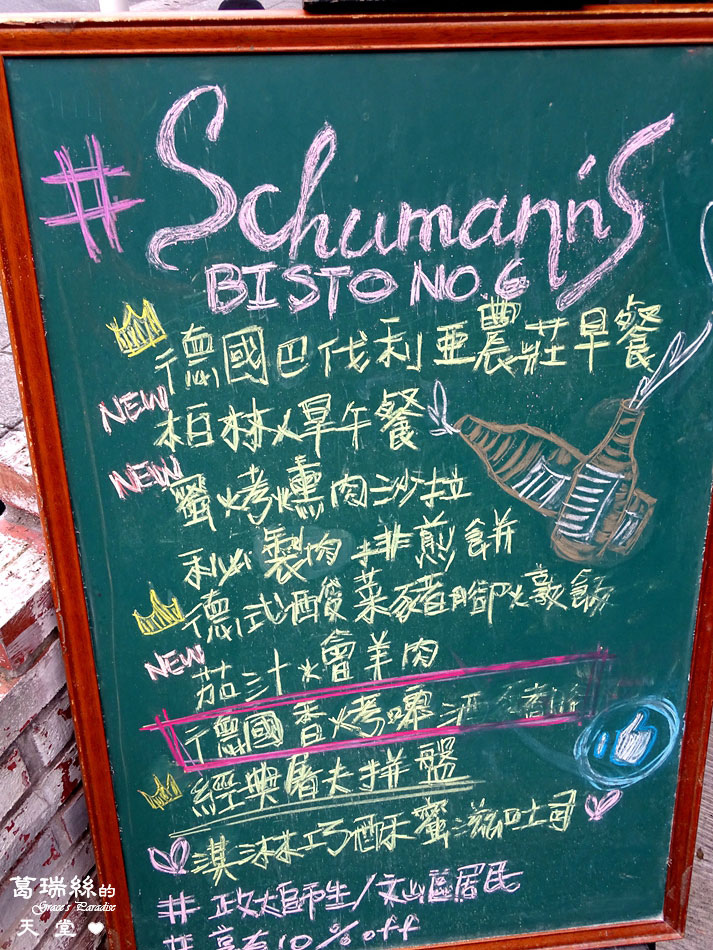 # Schumann's
BISTO NO.6
德國巴伐利亞農莊早餐
NEW 柏林火早午餐
NEW 蜜烤燻肉沙拉
私製肉排煎餅
德式酸菜豬腳燉飯
NEW 茄汁燴羊肉
德國香烤啤酒
經典屠夫拼盤
淇淋巧酥蜜滋吐司
# 政大師生/文山區居民
# 享有10% off
葛瑞絲的
Grace's Paradise
天堂